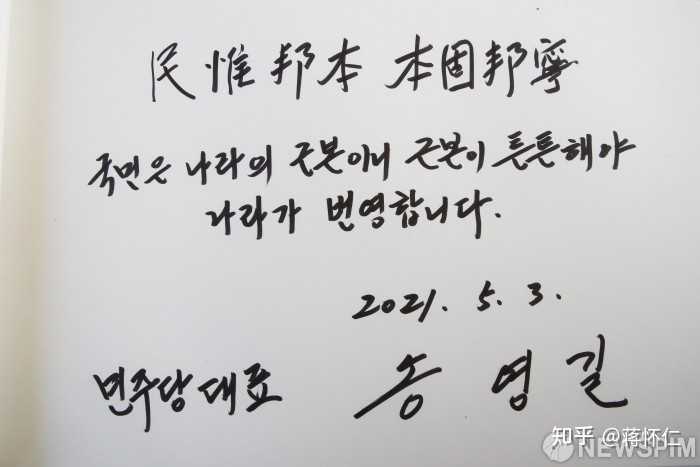 民惟邦本 本固邦寧
국민은 나라의 근본이니 근본이 튼튼해야
나라가 번영합니다.
2021. 5. 3.
민주당대표 송영길
知乎 @蒋怀仁
NEWSPIM